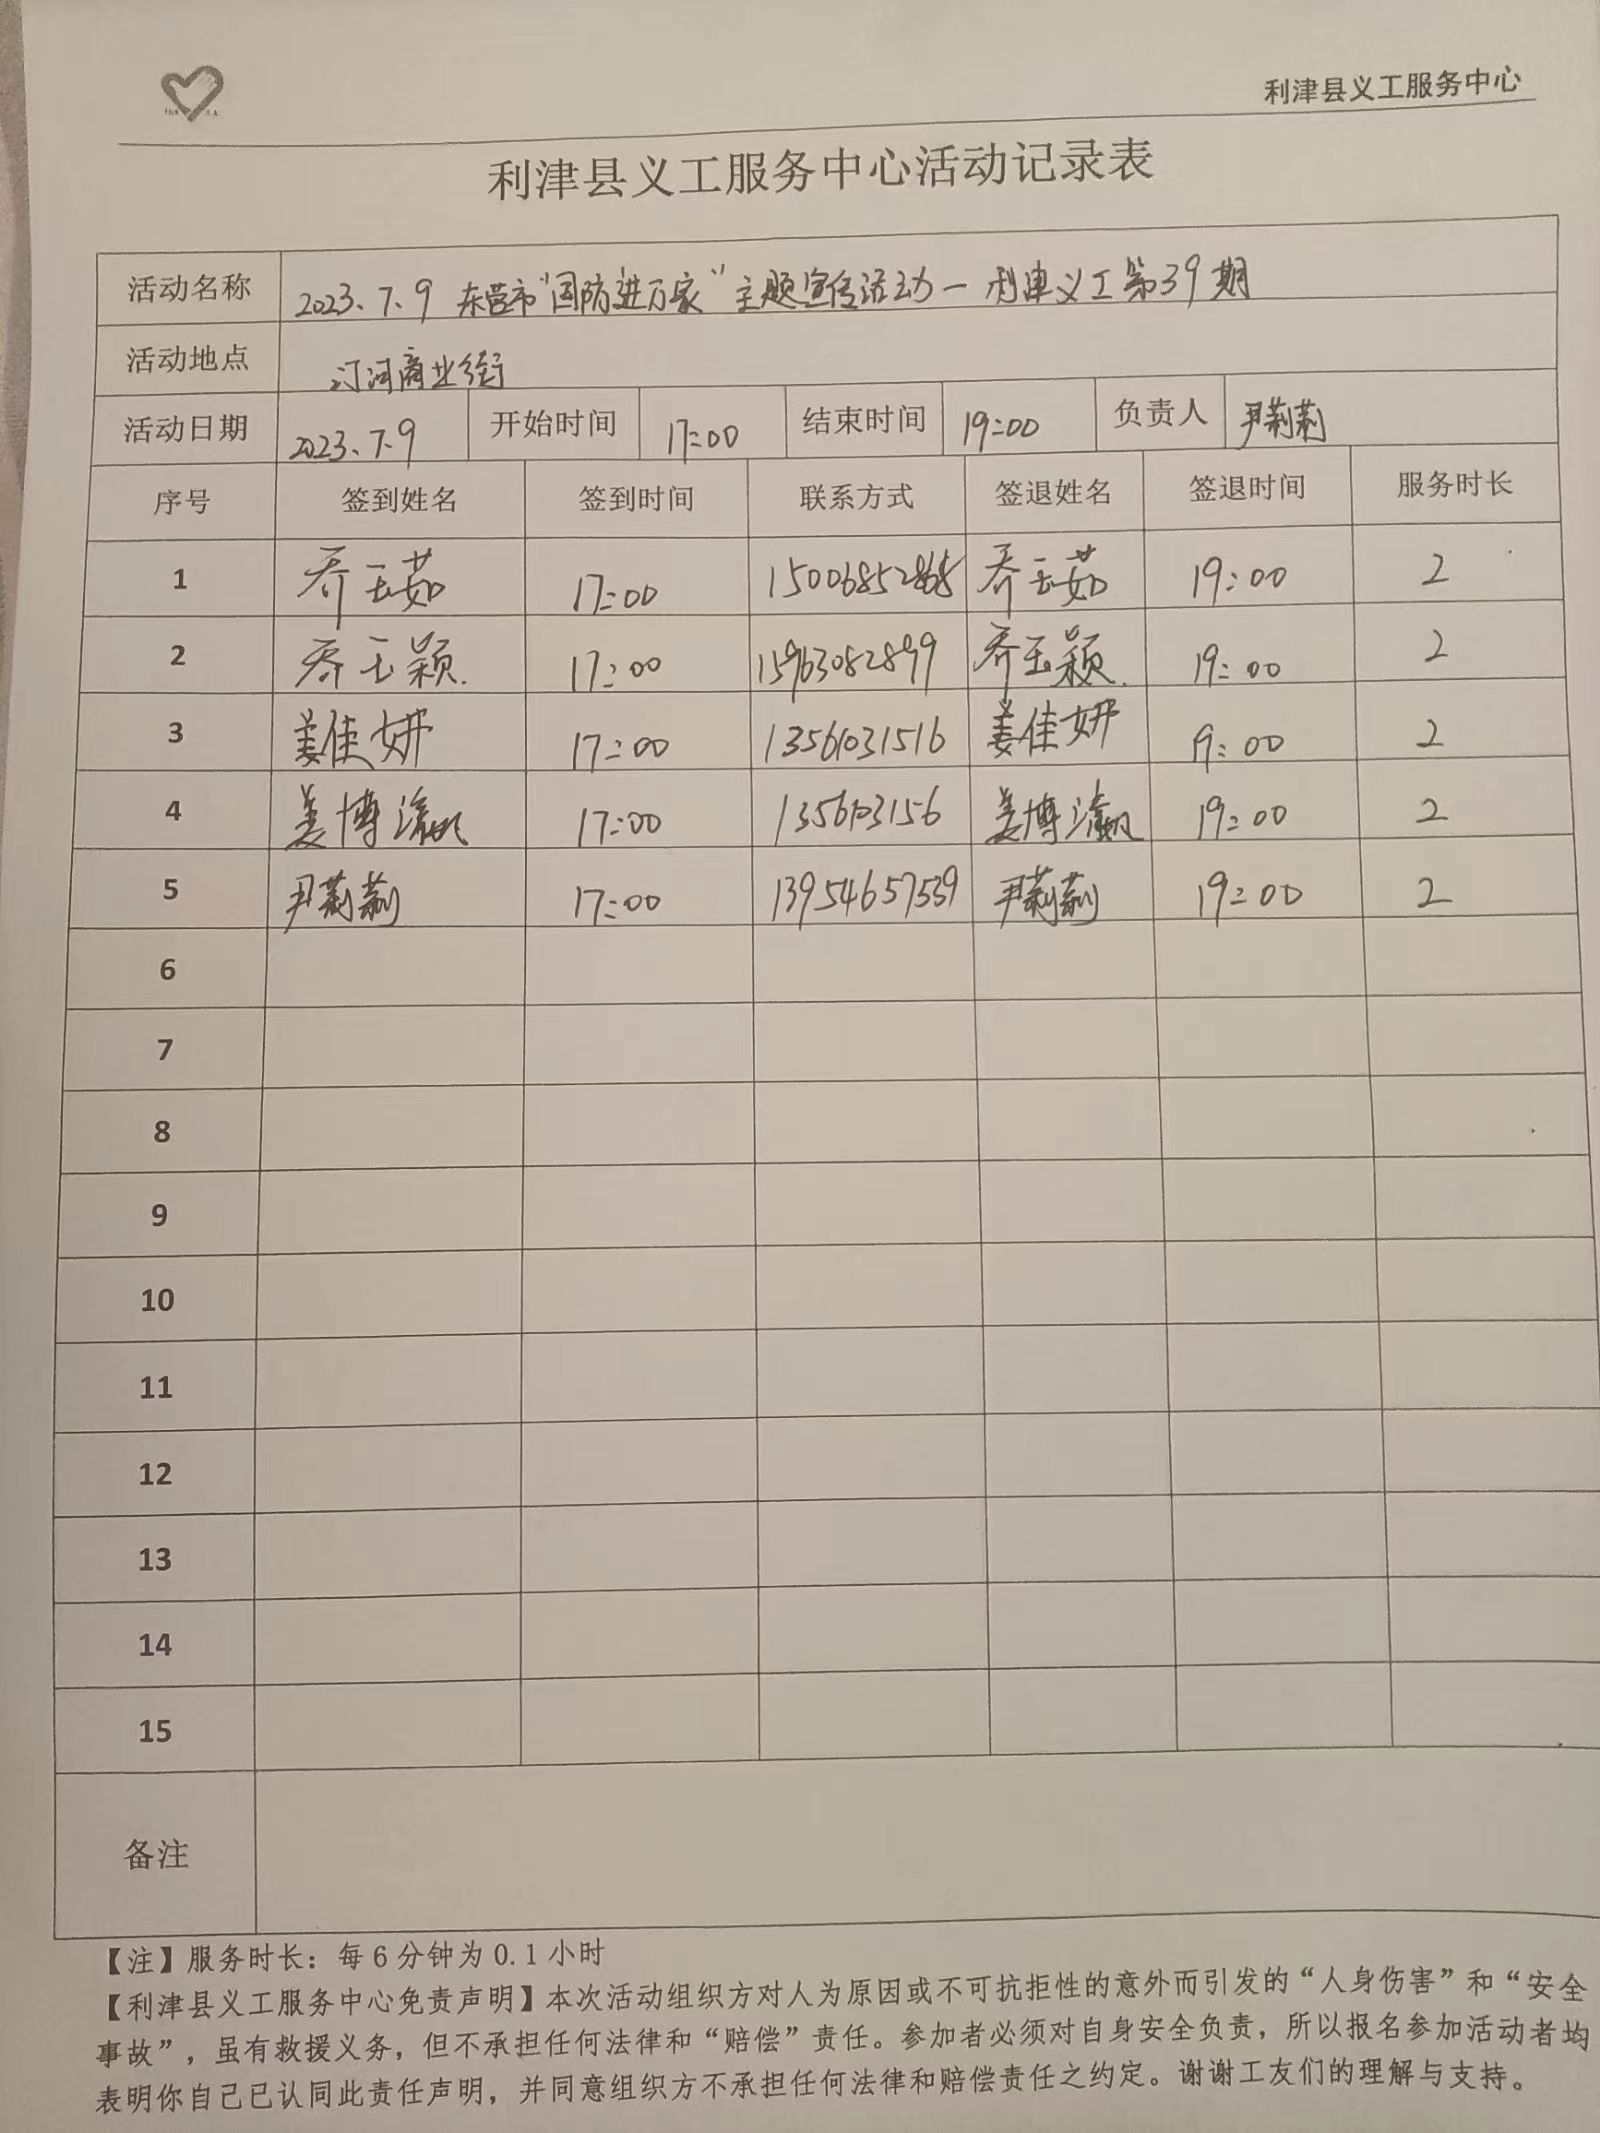 利津县义工服务中心
利津县义工服务中心活动记录表
活动名称 2023.7.9 东营市“国防进万家”主题宣传活动－利津义工第39期
活动地点 汀河商业街
活动日期 2023.7.9 开始时间 17:00 结束时间 19:00 负责人 尹莉莉
序号 签到姓名 签到时间 联系方式 签退姓名 签退时间 服务时长
1 乔玉茹 17:00 乔玉茹 19:00 2
2 乔玉颖 17:00 15963082899 乔玉颖 19:00 2
3 姜佳妍 17:00 13561031516 姜佳妍 19:00 2
4 姜博瀛 17:00 1356103156 姜博瀛 19:00 2
5 尹莉莉 17:00 13954657539 尹莉莉 19:00 2
6
7
8
9
10
11
12
13
14
15
备注
【注】服务时长：每6分钟为0.1小时
【利津县义工服务中心免责声明】本次活动组织方对人为原因或不可抗拒性的意外而引发的“人身伤害”和“安全
事故”，虽有救援义务，但不承担任何法律和“赔偿”责任。参加者必须对自身安全负责，所以报名参加活动者均
表明你自己已认同此责任声明，并同意组织方不承担任何法律和赔偿责任之约定。谢谢工友们的理解与支持。